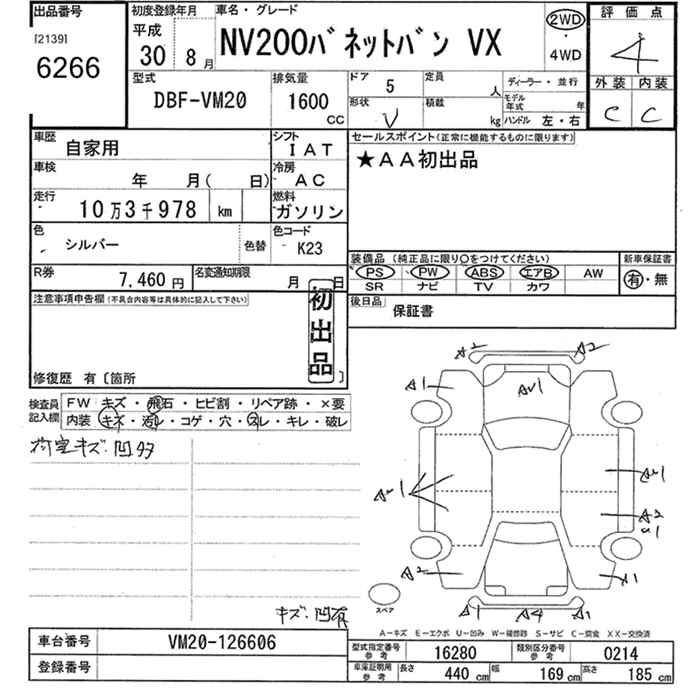 出品番号
[2139]
6266
初度登録年月
平成
30 8月
車名・グレード
NV200バネットバン VX
2WD
・
4WD
評価点
4
外装 内装
C C
型式
DBF-VM20
排気量
1600
CC
ドア 5
定員 人
ディーラー・並行
形状 V
積載 kg
モデル年式 年
ハンドル 左・右
車歴
自家用
シフト
IAT
セールスポイント(正常に機能するものに限ります)
★AA初出品
車検
年 月( 日)
冷房
AC
走行
10万3千978 km
燃料
ガソリン
色
シルバー
色替
色コード
K23
装備品 (純正品に限り○をつけてください)
PS PW ABS エアB AW
SR ナビ TV カワ
新車保証書
有・無
R券
7,460円
名変通知期限
月 日
後日品
保証書
注意事項申告欄(不具合内容等は具体的に記入して下さい)
初出品
修復歴 有〔箇所 〕
検査員記入欄
FW キズ・飛石・ヒビ割・リペア跡・×要
内装 キズ・汚レ・コゲ・穴・スレ・キレ・破レ
荷室キズ・凹多
A2 A2
A1
AU1
AU1
AU1
A2
A2
A1
A1 A4 A1
スペア
キズ・凹有
A-キズ E-エクボ U-凹み W-補修跡 S-サビ C-腐食 XX-交換済
車台番号
VM20-126606
登録番号
型式指定番号
参考
16280
類別区分番号
参考
0214
車庫証明用
参考
長さ 440 cm
幅 169 cm
高さ 185 cm